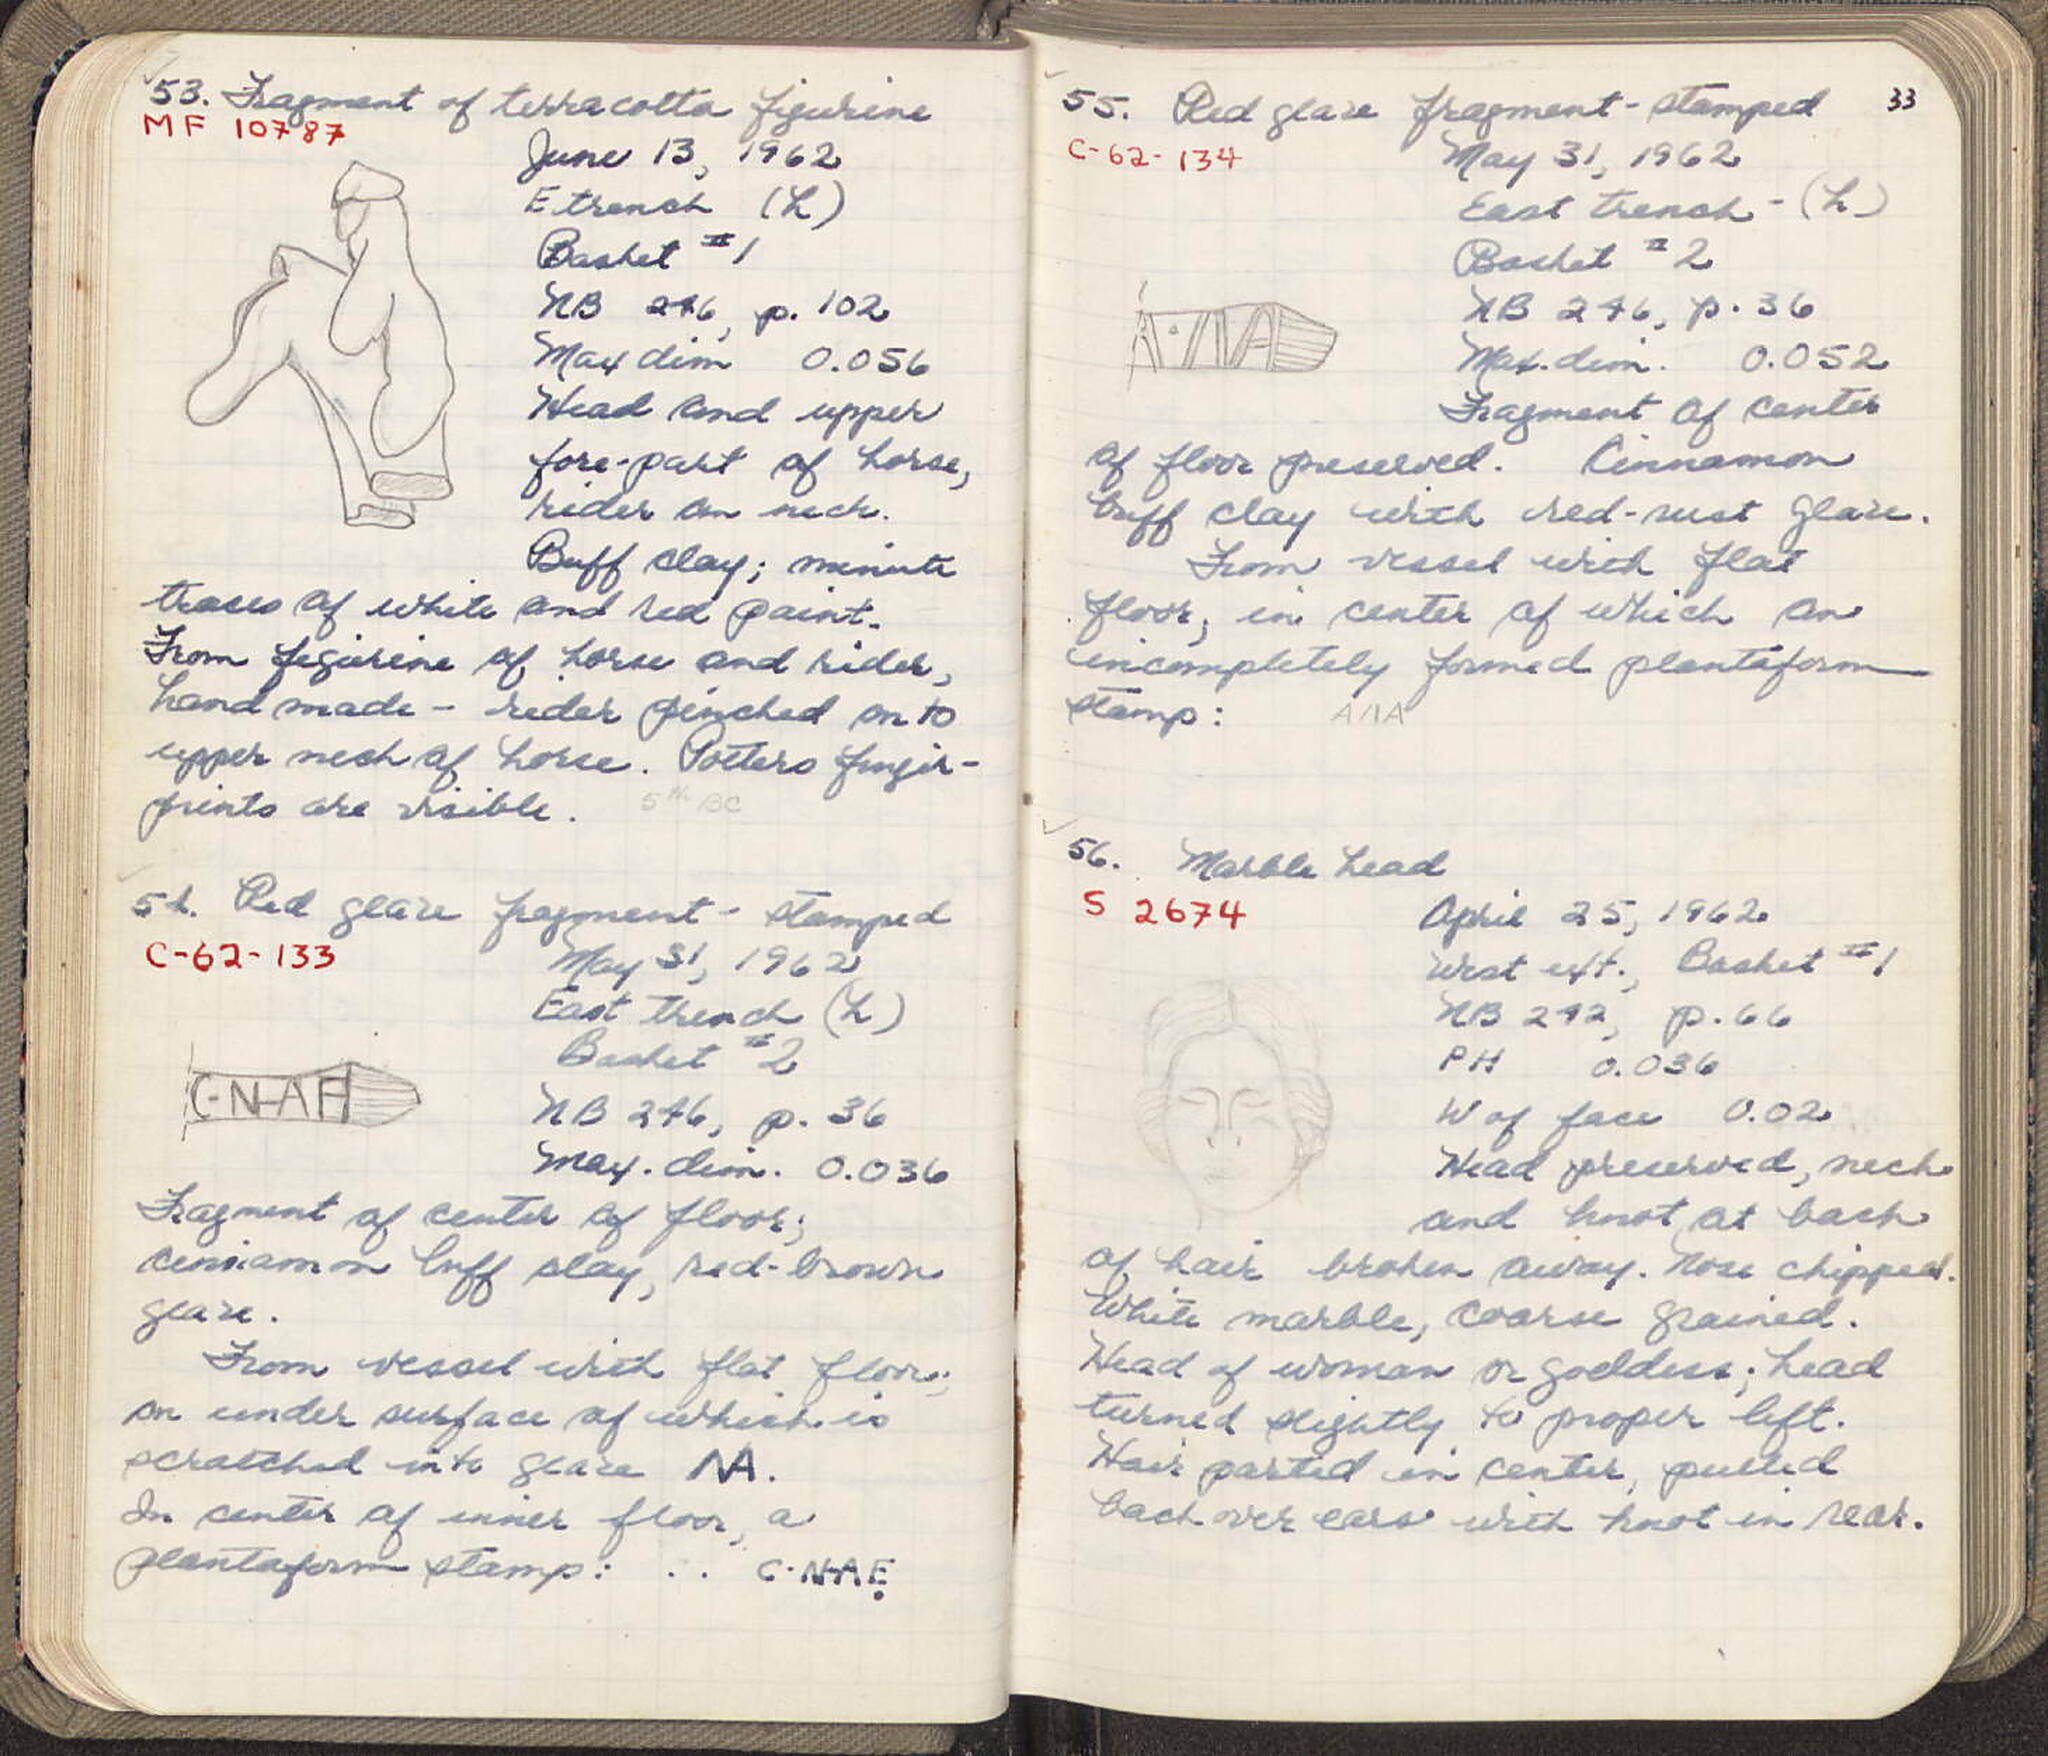 53. Fragment of terracotta figurine
MF 10787
June 13, 1962
E trench (L)
Basket #1
NB 246, p. 102
Max dim 0.056
Head and upper
fore-part of horse,
rider on neck.
Buff clay; minute
traces of white and red paint.
From figurine of horse and rider,
hand made - rider pinched on to
upper neck of horse. Potters finger-
prints are visible. 5th BC
54. Red glaze fragment - stamped
C-62-133
May 31, 1962
East trench (L)
Basket #2
C·N·AF
NB 246, p. 36
Max. dim. 0.036
Fragment of center of floor;
cinnamon buff clay, red-brown
glaze.
From vessel with flat floor;
on under surface of which is
scratched into glaze NA.
In center of inner floor, a
plantaform stamp: C·N·AE
33
55. Red glaze fragment - stamped
C-62-134
May 31, 1962
East trench - (L)
Basket #2
NB 246, p. 36
Max. dim. 0.052
Fragment of center
of floor preserved. Cinnamon
buff clay with red-rust glaze.
From vessel with flat
floor, in center of which an
incompletely formed plantaform
stamp:
56. Marble head
S 2674
April 25, 1962
West ext., Basket #1
NB 242, p. 66
PH 0.036
W of face 0.02
Head preserved, neck
and knot at back
of hair broken away. Nose chipped.
White marble, coarse grained.
Head of woman or goddess; head
turned slightly to proper left.
Hair parted in center, pulled
back over ears with knot in rear.